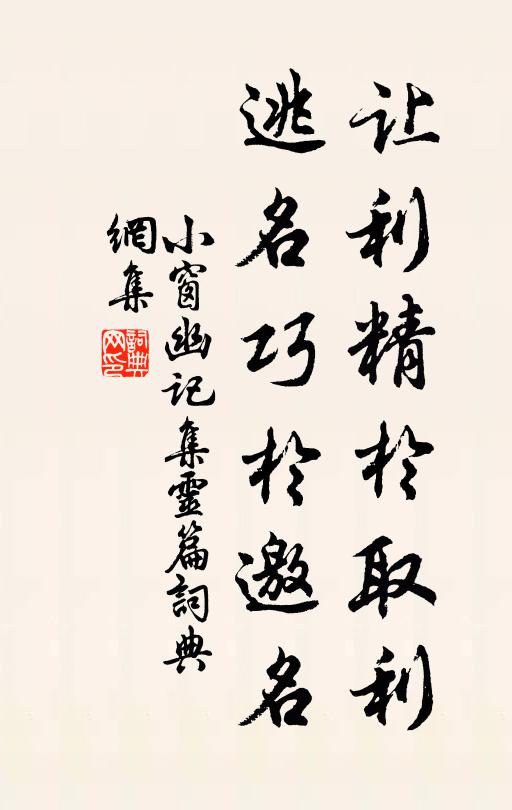 让利精於取利
逃名巧於邀名
小窗幽记集靈篇詞典
網集
詞典网印